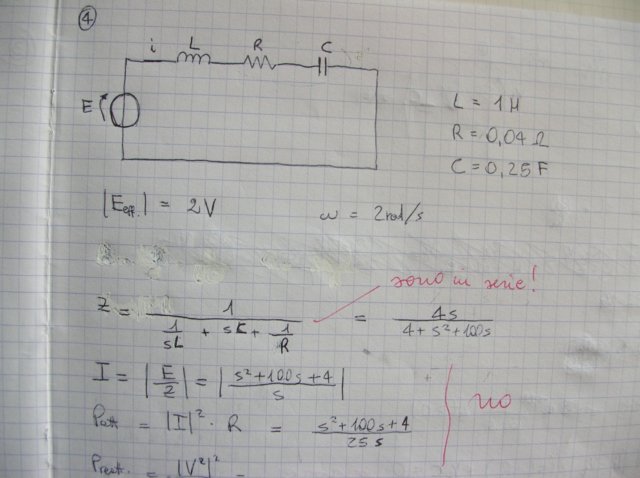 4
i L R C
E
L = 1H
R = 0,04 Ω
C = 0,25 F
|Eeff.| = 2V ω = 2rad/s
sono in serie!
Z = 1 / (1/sL + sC + 1/R) = 4s / (4 + s² + 100s)
I = |E/Z| = |(s² + 100s + 4) / s|
Patt = |I|² · R = (s² + 100s + 4) / 25s
no
Preatt. = |V²|² =